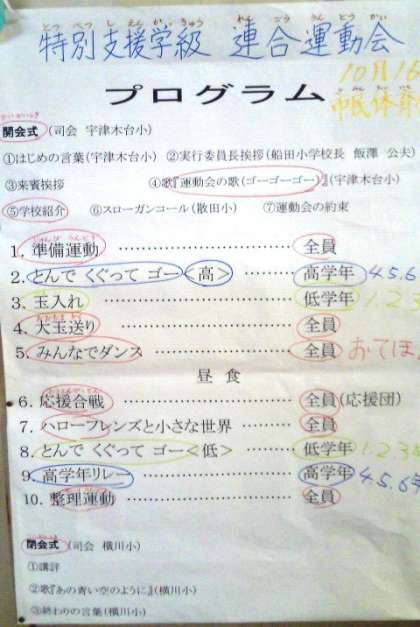 とくべつしえんがっきゅう れんごううんどうかい
特別支援学級 連合運動会
プログラム 10月16
市民体育
かいかいしき
開会式 (司会 宇津木台小)
①はじめの言葉(宇津木台小) ②実行委員長挨拶(船田小学校長 飯澤 公夫)
③来賓挨拶 ④歌『運動会の歌(ゴーゴーゴー)』(宇津木台小)
⑤学校紹介 ⑥スローガンコール(散田小) ⑦運動会の約束
じゅんびうんどう
1. 準備運動 ………………… 全員
2. とんで くぐって ゴー<高> ………… 高学年 4.5.6
3. 玉入れ ………………… 低学年 1.2.3
おおだまおく
4. 大玉送り ………………… 全員
5. みんなでダンス ………………… 全員 おてほ
昼食
おうえんがっせん
6. 応援合戦 ………………… 全員(応援団)
7. ハローフレンズと小さな世界 ………… 全員
8. とんで くぐって ゴー<低> ………… 低学年 1.2.3年
9. 高学年リレー ………………… 高学年 4.5.6年
10. 整理運動 ………………… 全員
閉会式 (司会 横川小)
①講評
②歌『あの青い空のように』(横川小)
③終わりの言葉(横川小)